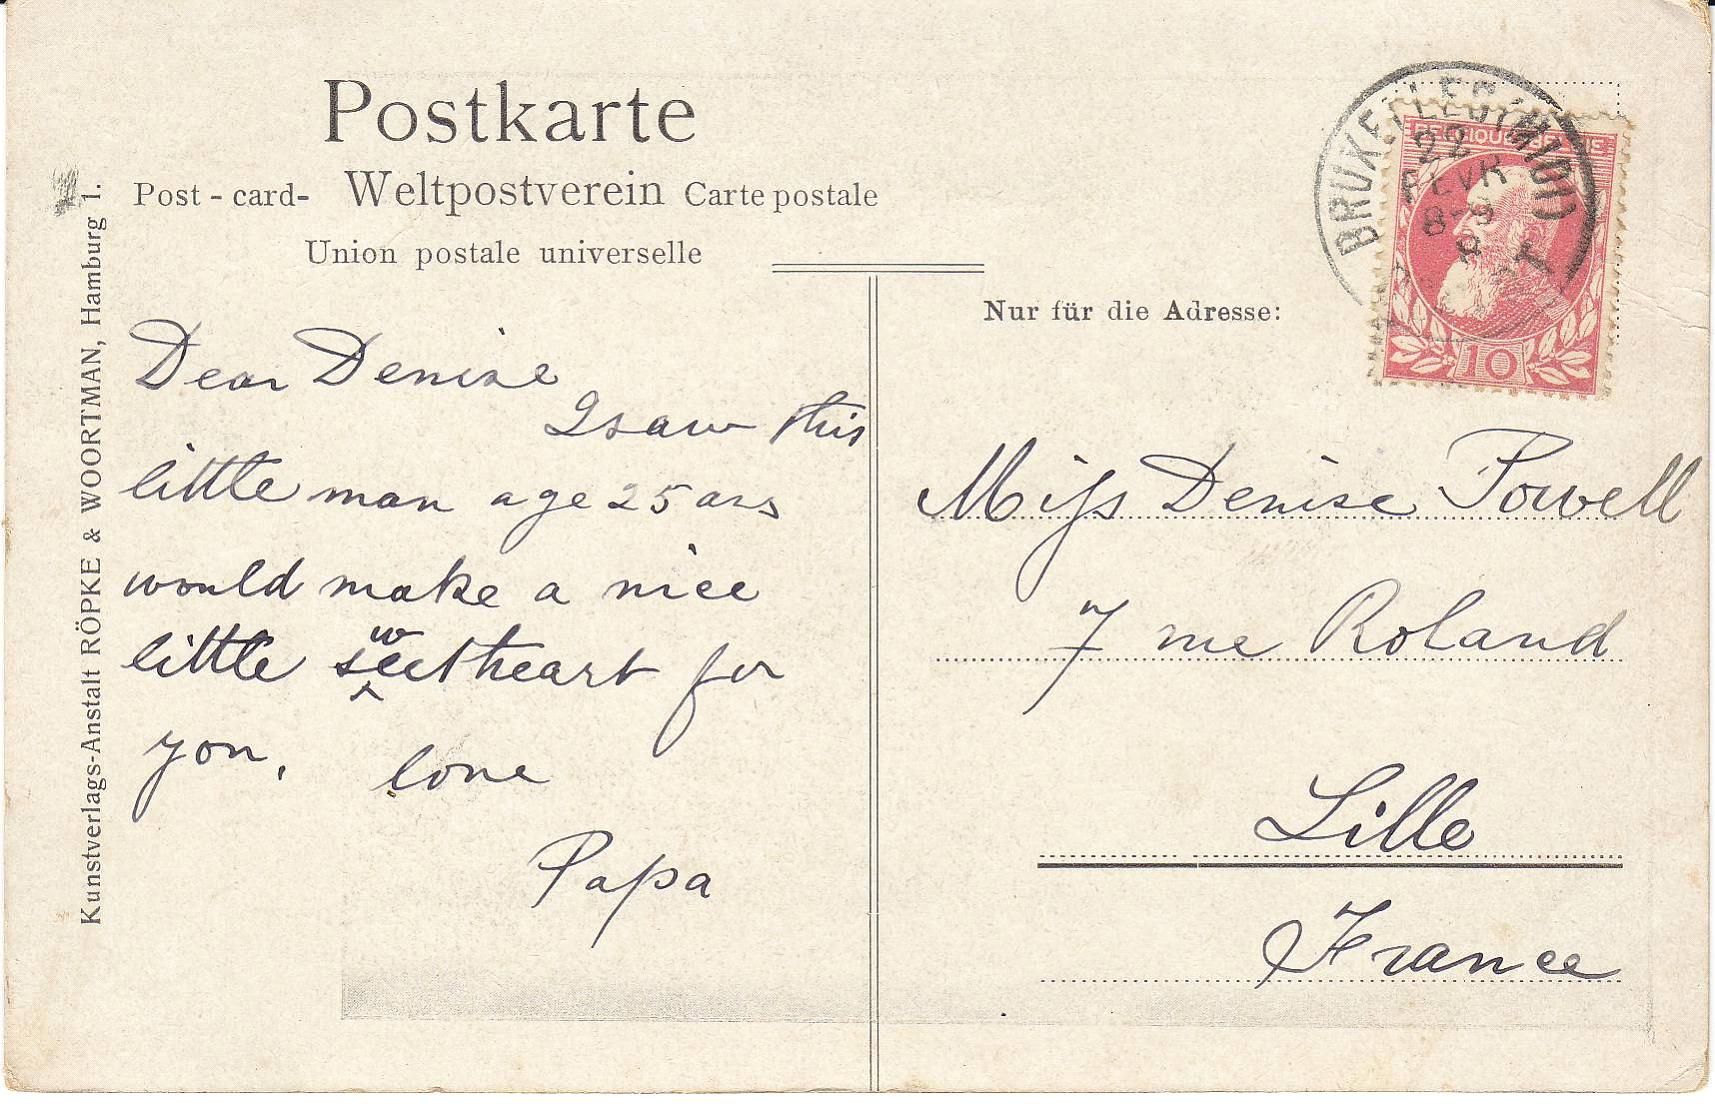 Postkarte
Post - card- Weltpostverein Carte postale
Union postale universelle
Kunstverlags-Anstalt RÖPKE & WOORTMAN, Hamburg 1.
Dear Denise
I saw this
little man age 25 ans
would make a nice
little seetheart for
w
you.
love
Papa
BRUXELLES (MIDI)
22
FEVR
8-9
8
BELGIQUE BELGIE
10
Nur für die Adresse:
Miss Denise Powell
7 rue Roland
Lille
France